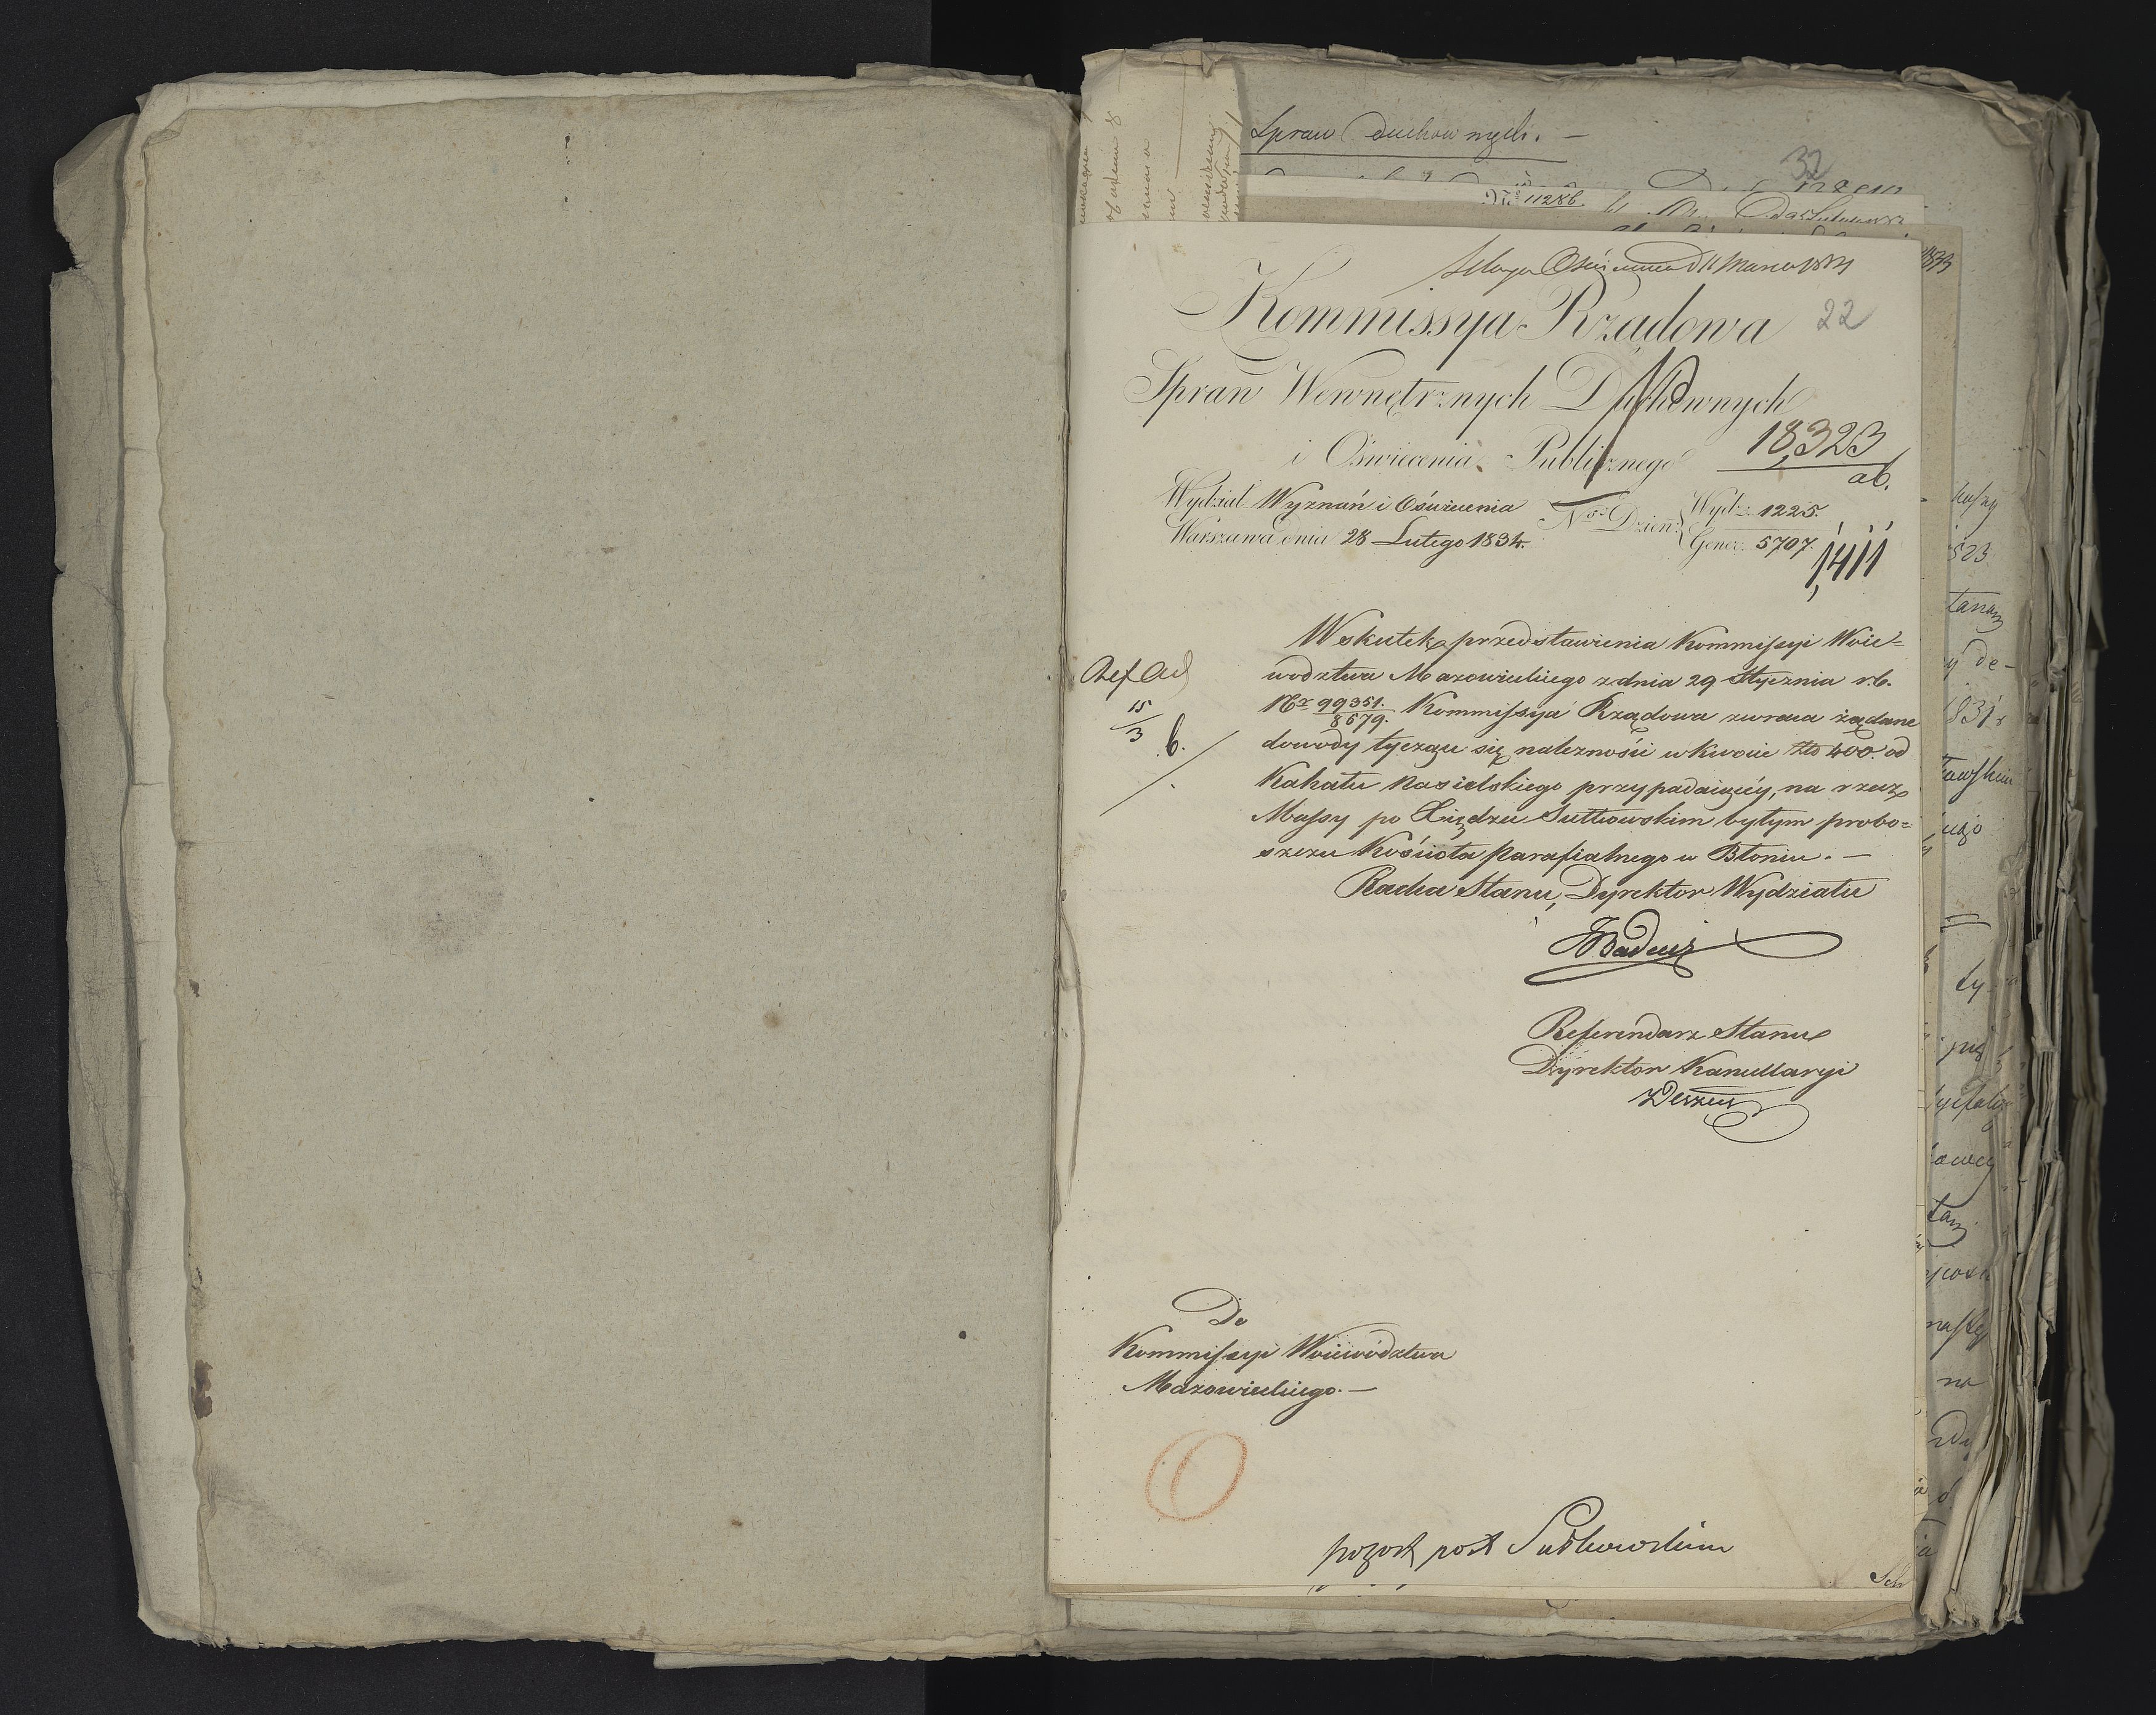 Spraw Duchownych. —
32
No 11286
22
Kommissya Rządowa
Spraw Wewnętrznych Duchownych
i Oświecenia Publicznego
18,323
ab.
Wydział Wyznań i Oświecenia
Warszawa dnia 28 Lutego 1834.
Nro Dzien: Wydz: 1225.
Gener: 5707.
1,411
Wskutek przedstawienia Kommissyi Woie-
wództwa Mazowieckiego z dnia 29 Stycznia r.b.
Nr 99351./8679. Kommissya Rządowa zwraca żądane
dowody tyczące się należności w kwocie złt 400. od
Kahału Nasielskiego przypadaiącéy, na rzecz
Massy po Xiędzu Sutkowskim byłym probo=
szczu Kościoła Parafialnego w Błoniu. —
Radca Stanu, Dyrektor Wydziału
Badeni
Referendarz Stanu
Dyrektor Kancellaryi
Ref Ad
15/3 b.
Do
Kommissyi Woiewództwa
Mazowieckiego. —
pozost post Sutkowskim